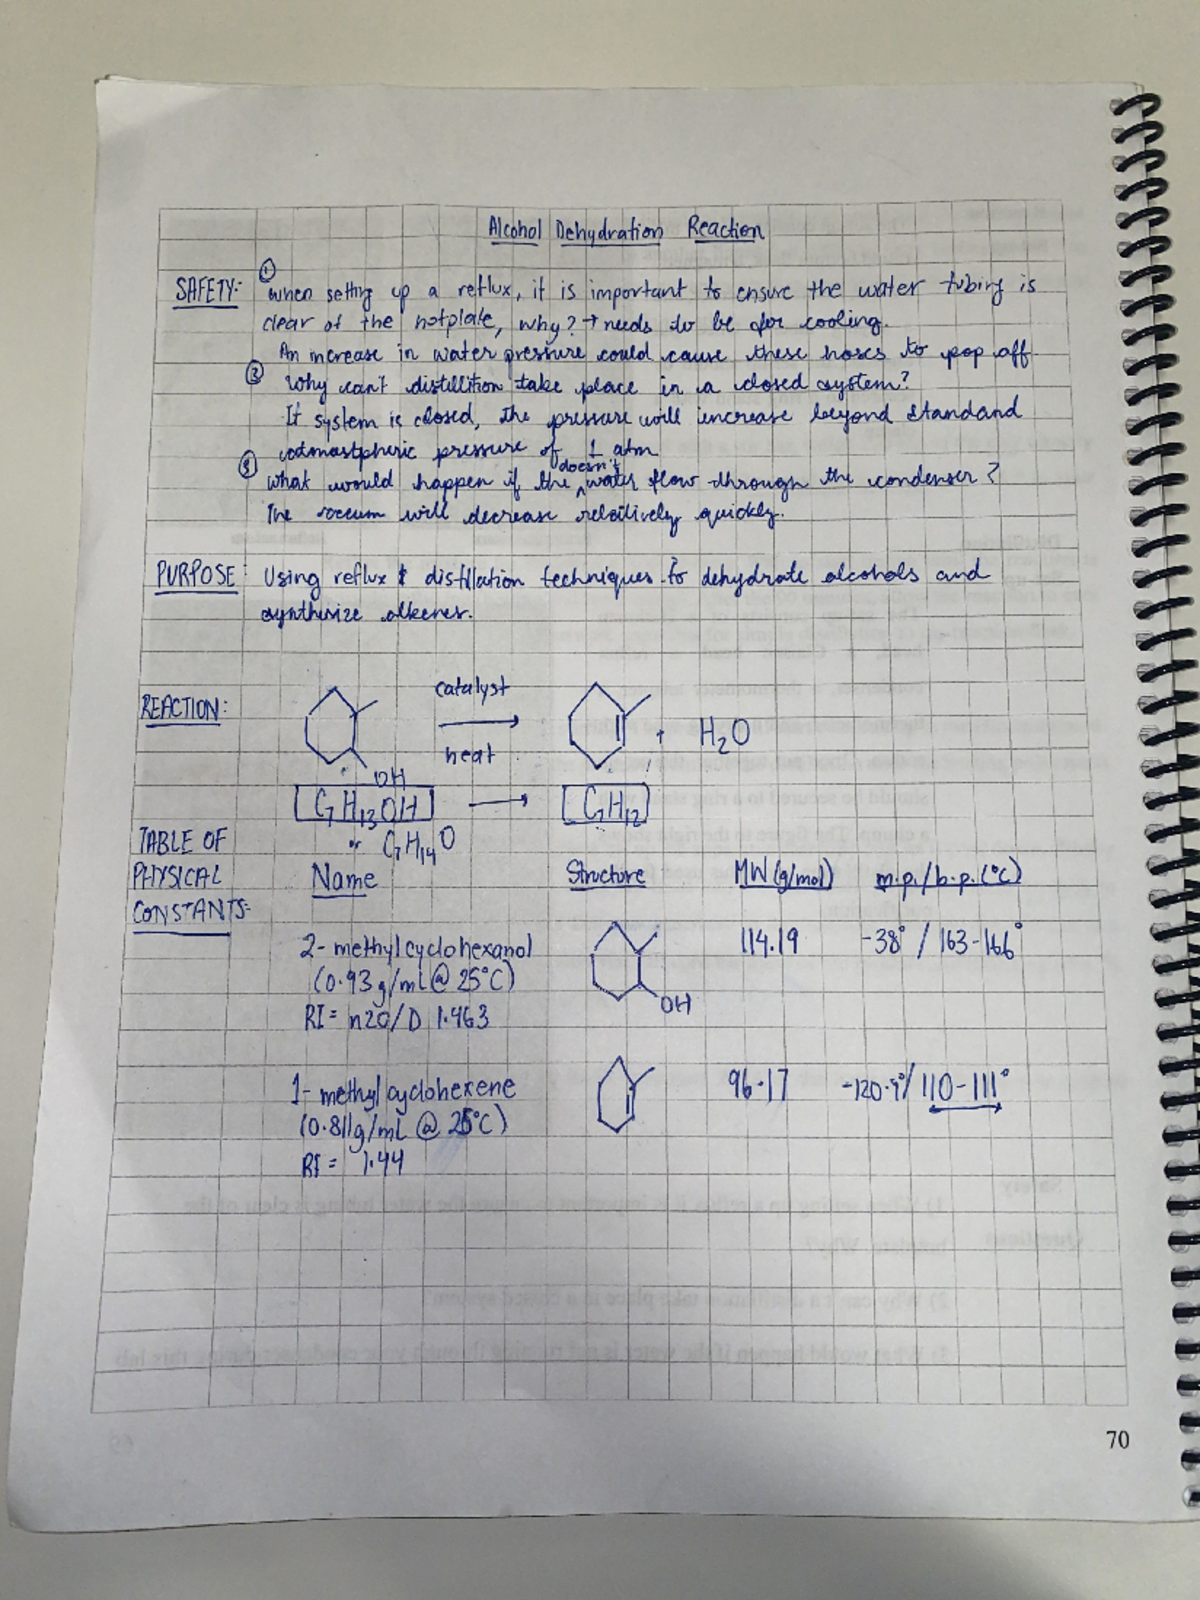 Alcohol Dehydration Reaction
SAFETY:- ① When setting up a reflux, it is important to ensure the water tubing is
clear of the hotplate, why? → needs to be for cooling.
An increase in water pressure could cause these hoses to pop off.
② Why can't distillition take place in a closed system?
If system is closed, the pressure will increase beyond standand
atmostpheric pressure of 1 atm
③ What would happen if the doesn't water flow through the condenser?
The vaccum will decrease relaitively quickly.
PURPOSE: Using reflux & distillation techniques to dehydrate alcohols and
synthesize alkenes.
REACTION: catalyst
heat + H₂O
OH
C₇H₁₃OH → C₇H₁₂
or C₇H₁₄O
TABLE OF
PHYSICAL
CONSTANTS:-
Name Structure MW (g/mol) m.p./b.p. (°C)
2-methylcyclohexanol 114.19 -38° / 163-166°
(0.93 g/mL @ 25°C)
RI = n20/D 1.463
OH
1-methylcyclohexene 96.17 -120.4° / 110-111°
(0.811g/mL @ 25°C)
RI = 1.44
70